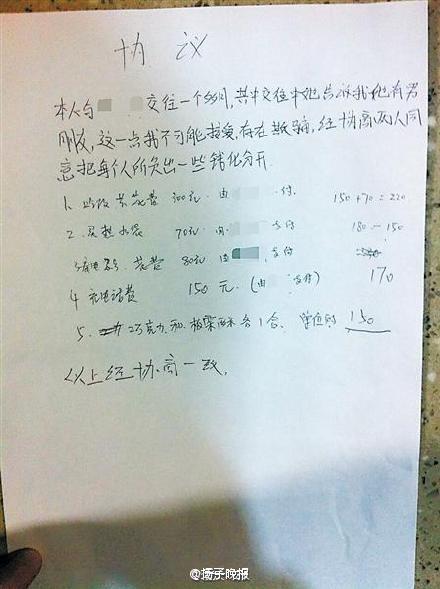 协 议
本人与 交往一个多月,其中交往中她告诉我她有男
朋友,这一点我不可能接受,存在欺骗,经协商两人同
意把每个人所负出一些钱化分开.
1. 花费 300元. 由 支付. 150+70=220
2. 买 70元 由 支付 180-150
花费 80元 由 支付
170
4 充电话费 150元. (由 支付)
5. 巧克力 和 各1合. 150
以上经协商一致.
@扬子晚报